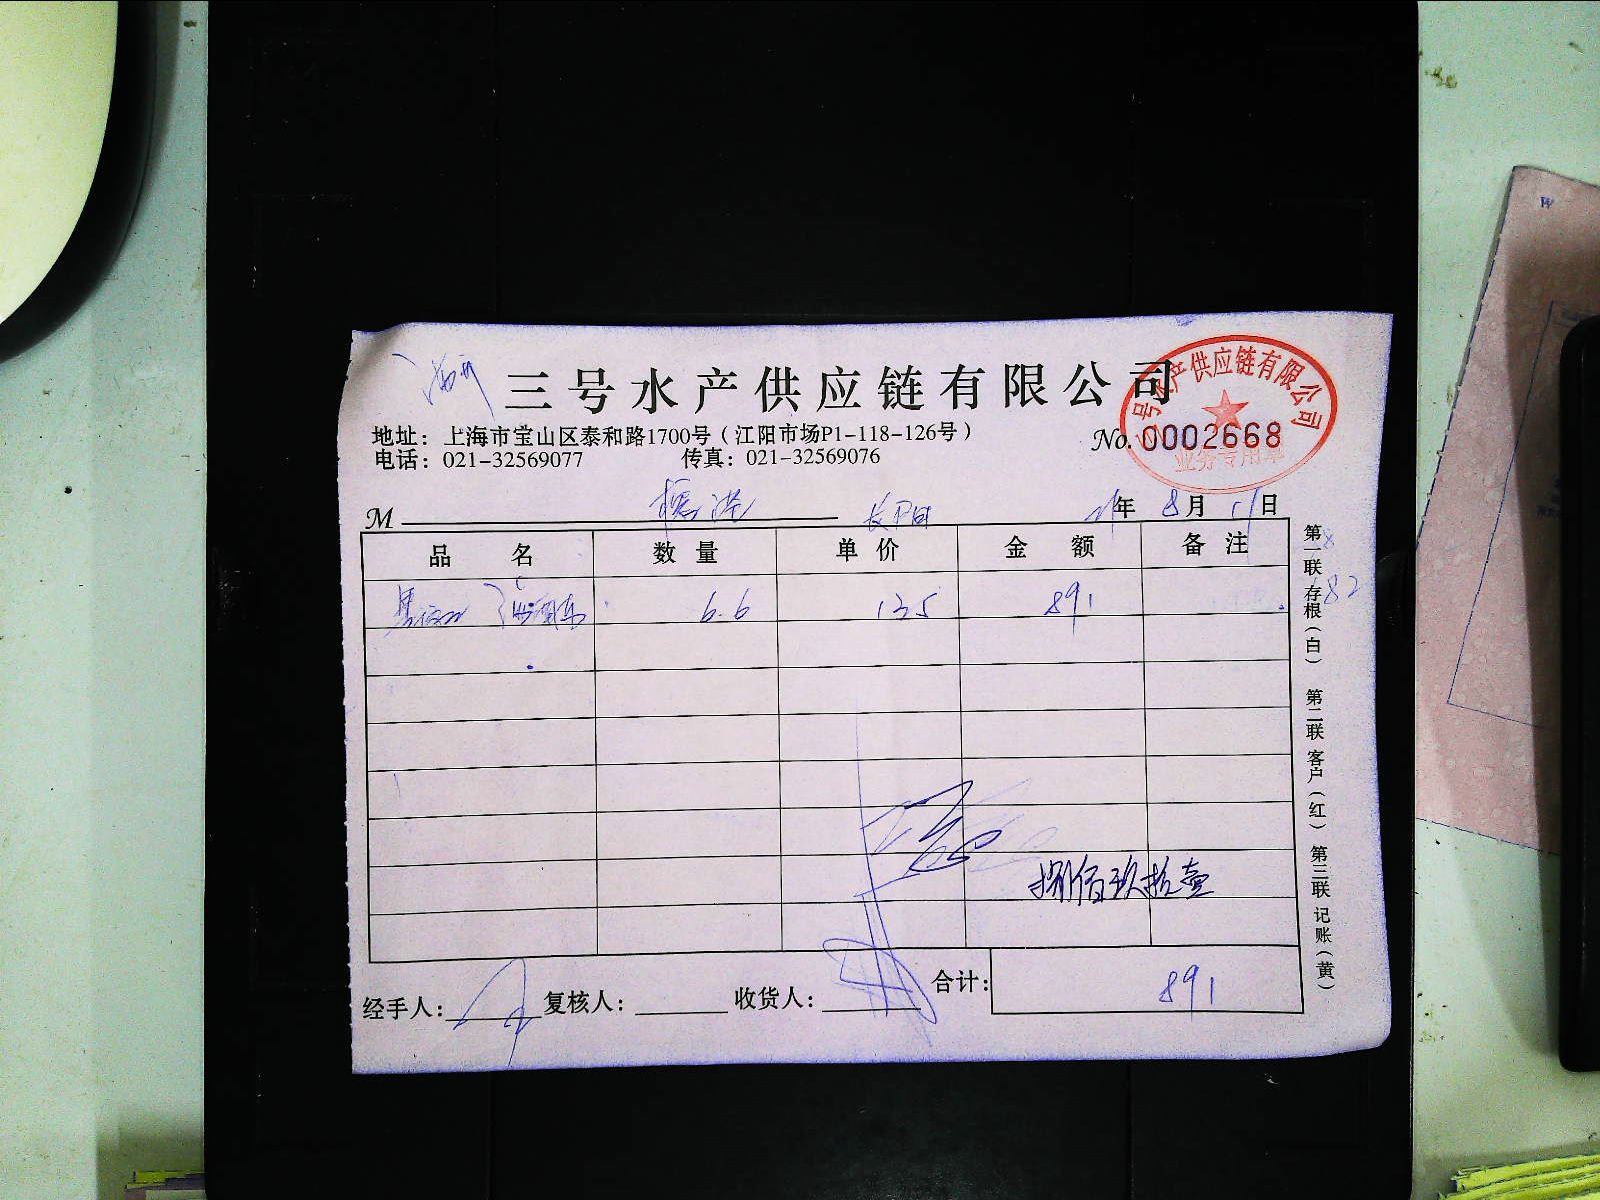 三号水产供应链有限公司
三号水产供应链有限公司
业务专用章
地址：上海市宝山区泰和路1700号（江阳市场P1-118-126号）
No. 0002668
电话：021-32569077 传真：021-32569076
M 长阳 21年 8月 11日
品名 数量 单价 金额 备注
6.6 135 891
捌佰玖拾壹
经手人： 复核人： 收货人： 合计： 891
第一联 存根（白） 第二联 客户（红） 第三联 记账（黄）
82